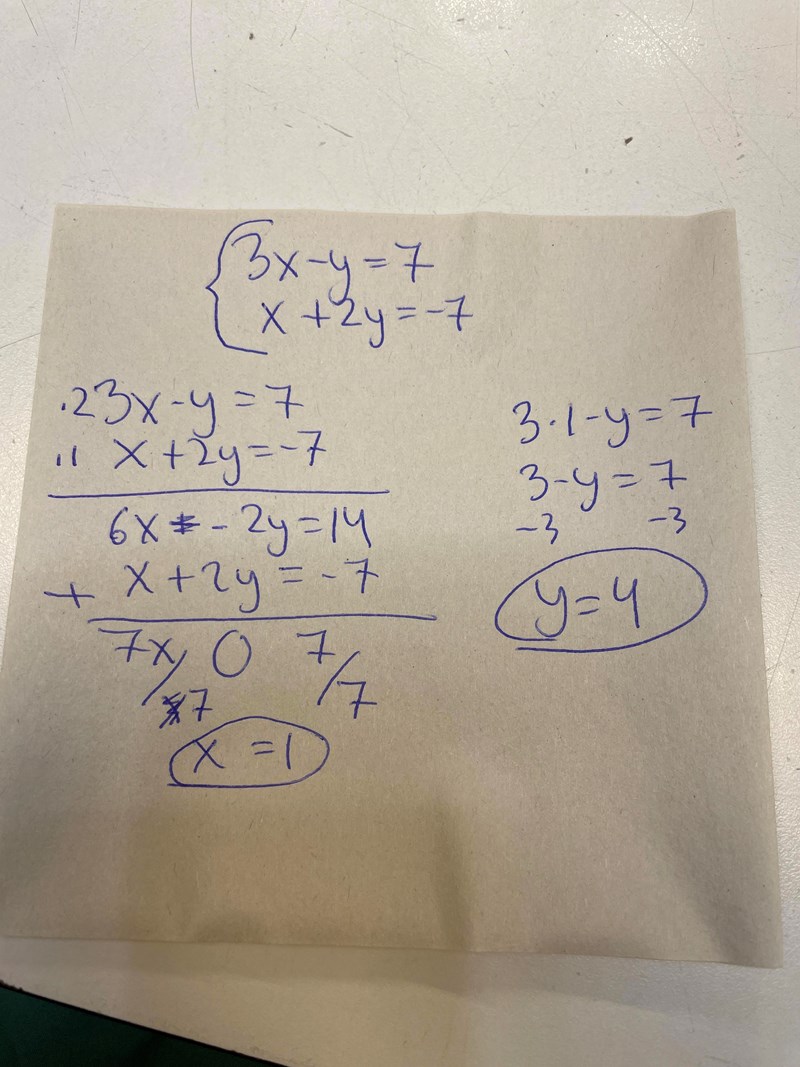 3x-y=7
x+2y=-7
·2 3x-y=7
·1 x+2y=-7
6x - 2y=14
+ x+2y=-7
7x/7 0 7/7
x=1
3·1-y=7
3-y=7
-3 -3
y=4